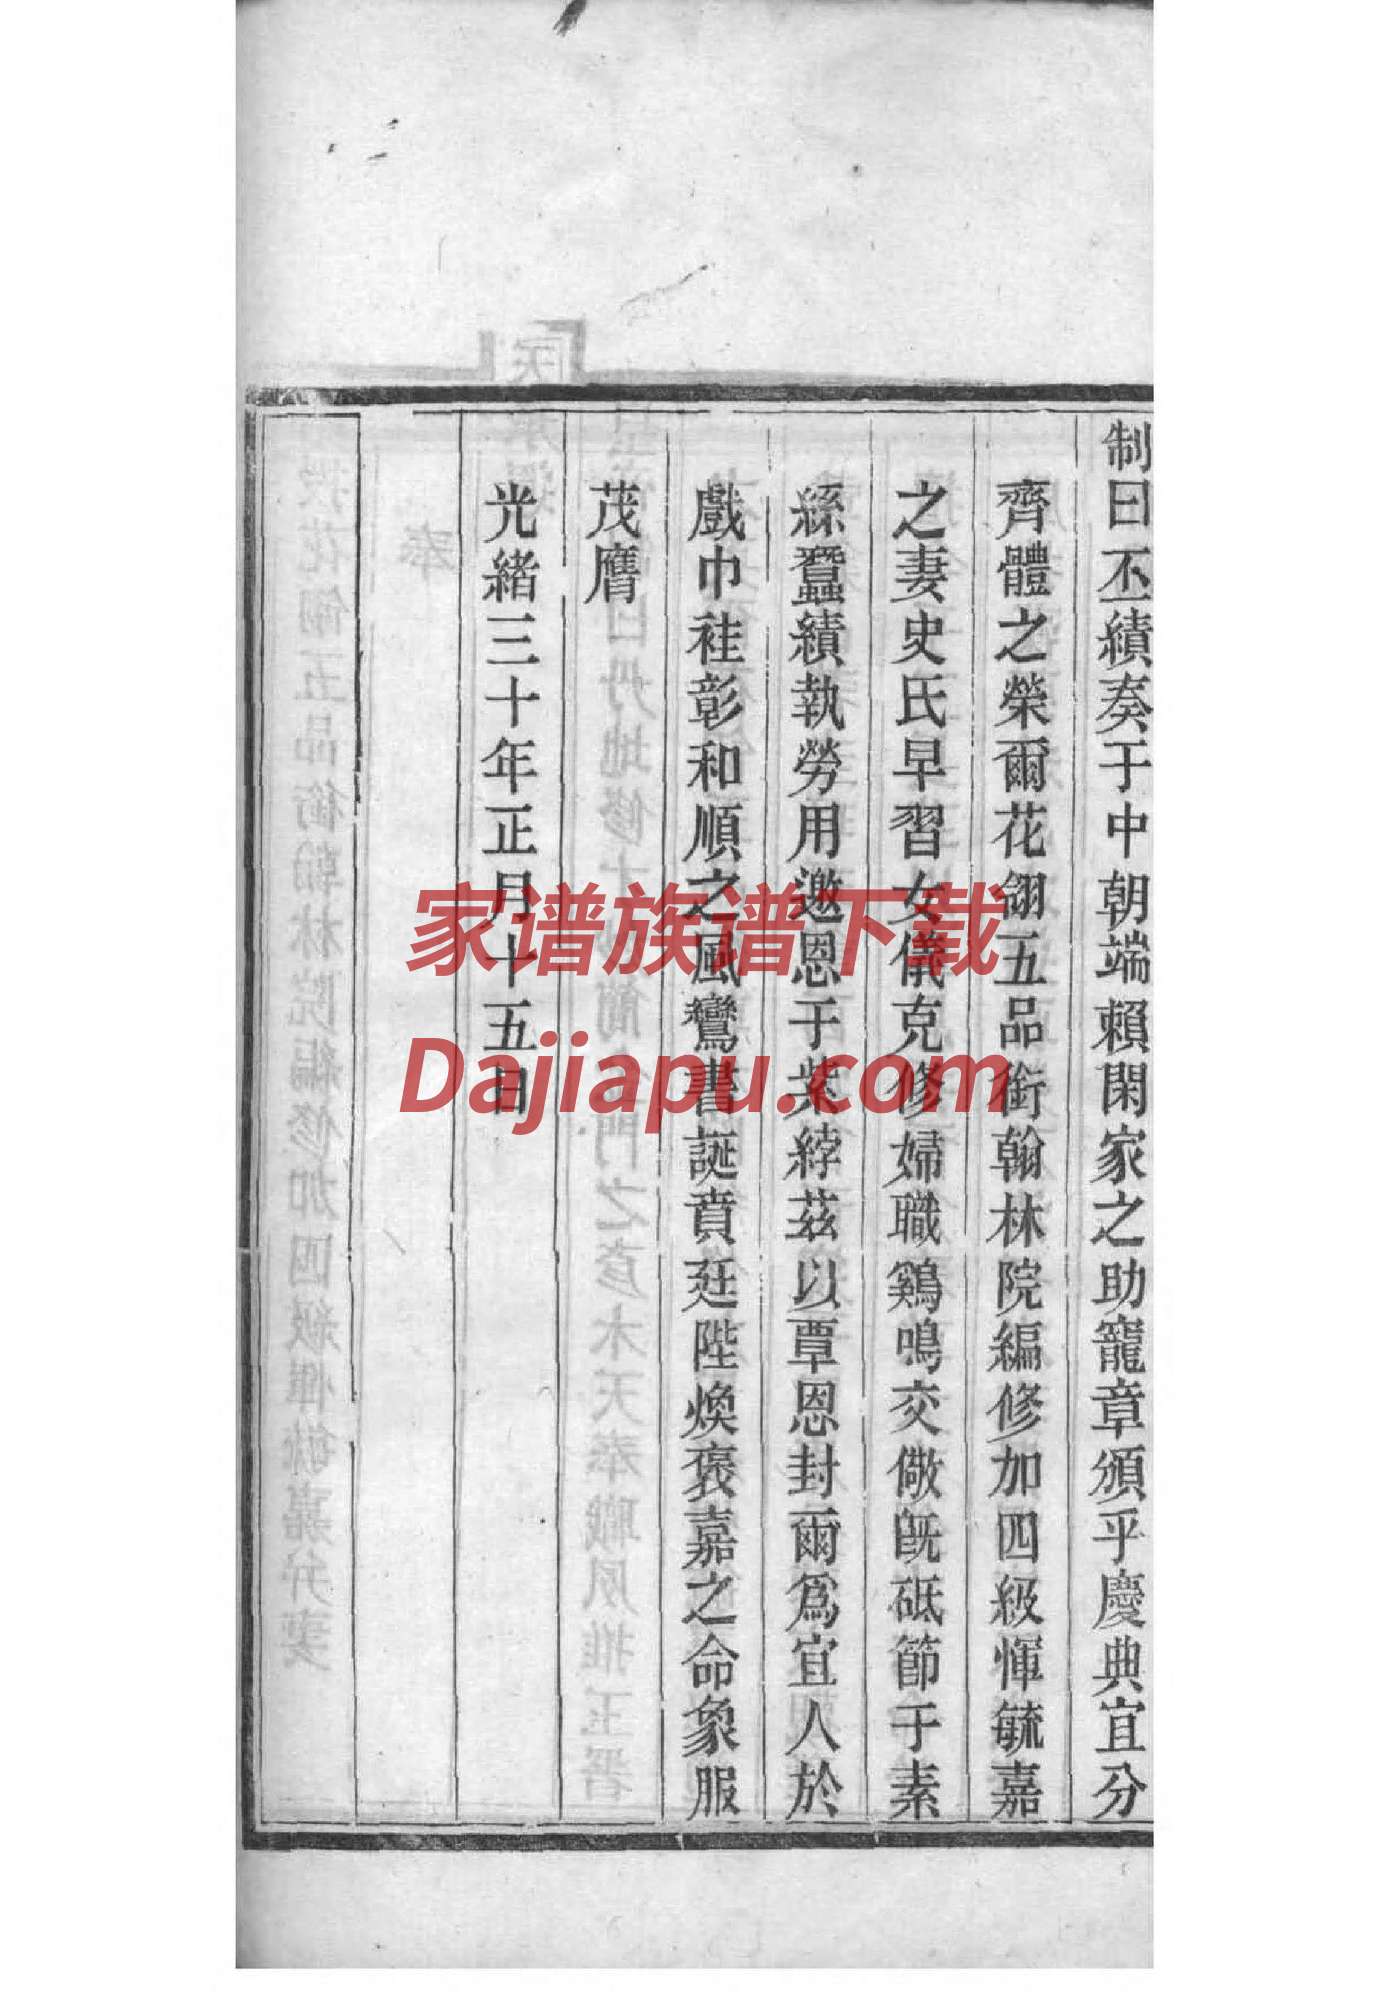 制曰丕績奏于中朝端賴閑家之助寵章頒乎慶典宜分
齊體之榮爾花翎五品銜翰林院編修加四級惲毓嘉
之妻史氏早習女儀克修婦職鷄鳴交儆旣砥節于素
絲蠶績執勞用邀恩于紫綍茲以覃恩封爾爲宜人於
戲巾袿彰和順之風鸞書誕賁廷陛煥褒嘉之命象服
茂膺
光緒三十年正月十五日
家谱族谱下载
Dajiapu.com